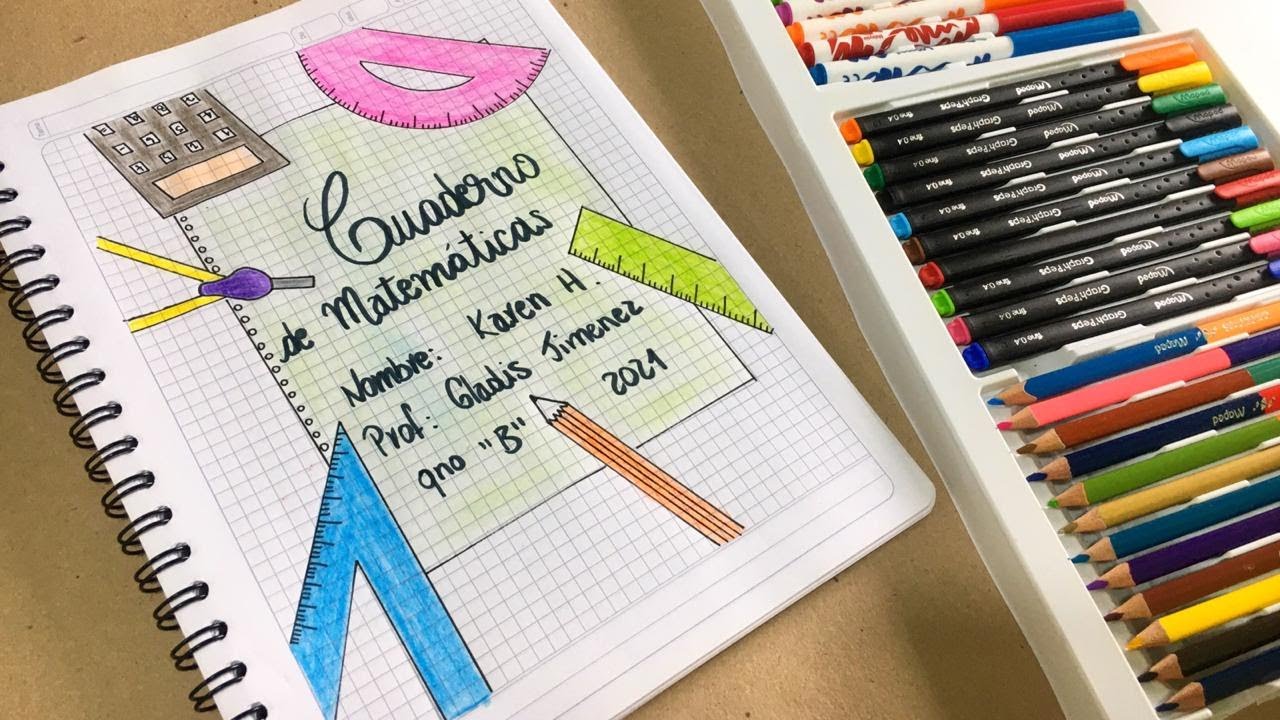 Cuaderno
de Matemáticas
Nombre: Karen H.
Prof: Gladis Jimenez
9no "B" 2021
Maped GraphPeps fine 0.4
Maped GraphPeps fine 0.4
Maped GraphPeps fine 0.4
Maped GraphPeps fine 0.4
Maped GraphPeps fine 0.4
Maped GraphPeps fine 0.4
Maped GraphPeps fine 0.4
Maped GraphPeps fine 0.4
Maped GraphPeps fine 0.4
Maped GraphPeps fine 0.4
Maped
Maped